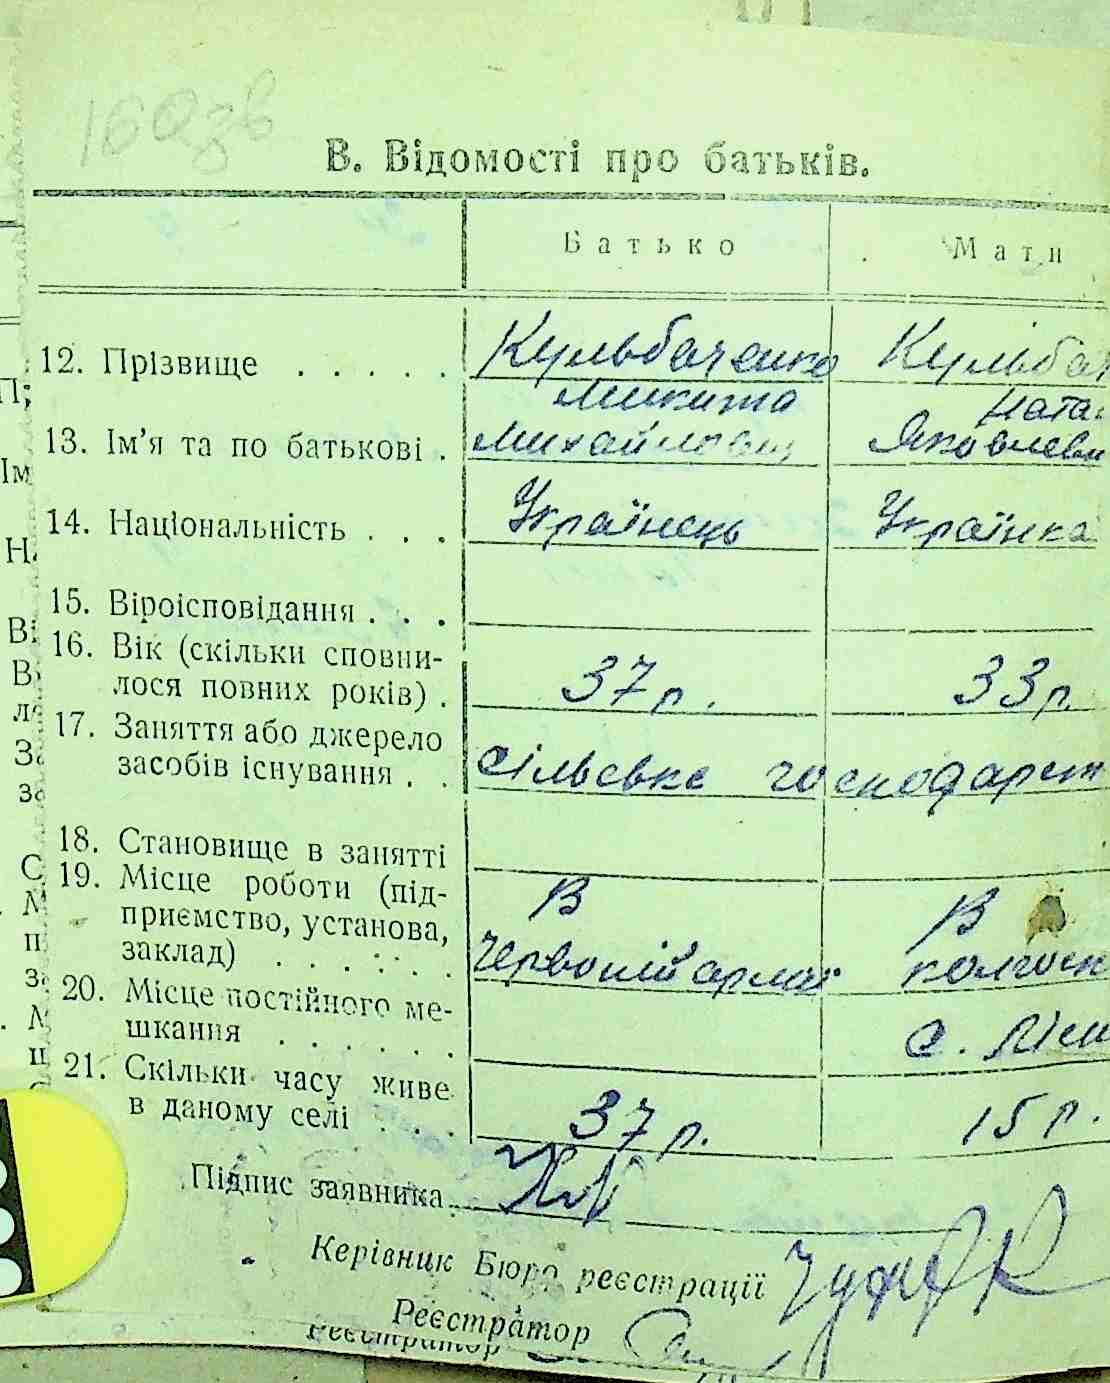 В. Відомості про батьків.
Батько Мати
12. Прізвище . . . . . Кульбаченко Кульбач
Микита Ната
13. Ім'я та по батькові . Михайлович Яковлевн
14. Національність . . . Українець Українка
15. Віроісповідання . . .
16. Вік (скільки сповни-
лося повних років) . 37 р. 33 р.
17. Заняття або джерело
засобів існування . . сільське господарст
18. Становище в занятті
19. Місце роботи (під- В В
приємство, установа,
заклад) . . . . . . Червоній армії колгосп
20. Місце постійного ме-
шкання . . . . . . с. Лісн
21. Скільки часу живе
в даному селі . . . 37 р. 15 р.
Підпис заявника
Керівник Бюро реєстрації
Реєстратор
Реєстратор